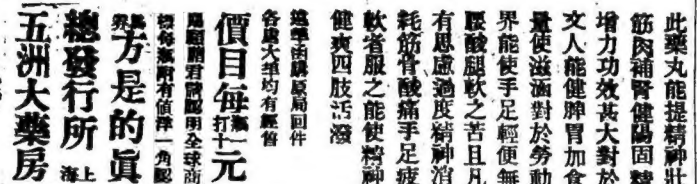 此藥丸能提精神壯
筋肉補腎健陽固精
增力功效甚大對於
文人能健脾胃加食
量使滋涵對於勞動
界能使手足輕便無
腰酸腿軟之苦且凡
有思慮過度精神消
耗筋骨酸痛手足疲
軟者服之能使精神
健爽四肢活潑
遠埠函購原局回件
各處大埠均有經售
價目每瓶一元打十元
賜顧諸君請認明全球商
標每瓶附有值洋一角認
方是的眞
總發行所上海
五洲大藥房